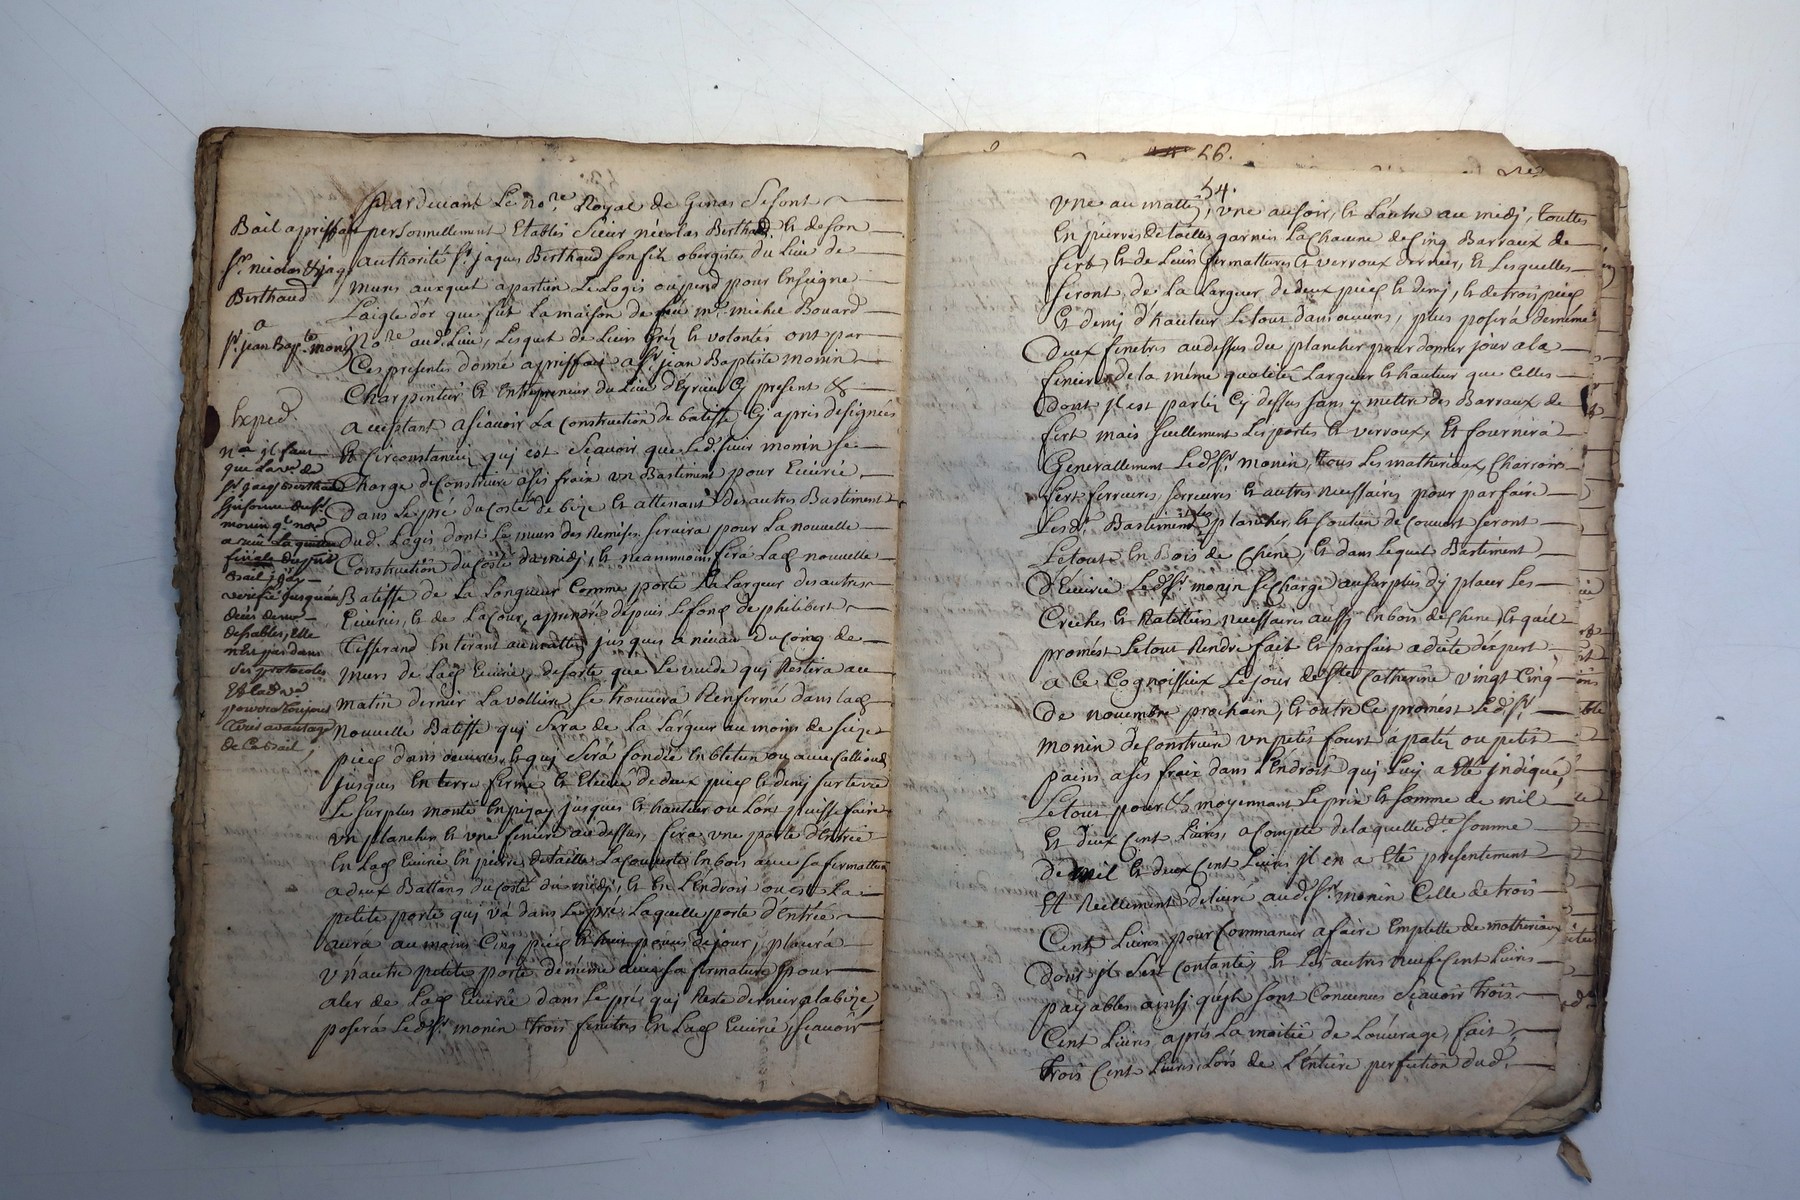 pardevant Le no.re Royal de Genas Sesont
personnellement Etablis Sieur nicolas Berthaud & deson
authorité s.r jaques Berthaud son fils obergiste du Lieu de
mures auxquel apartien Le Logis ou pend pour Enseigne
Laigle d'or que fut La maison de feu m.e michel Bouard
No.re aud. Lieu, Lesquel de Leurs grés & volontés ont par
Ces presentes donné aprisfait a s.r jean Baptiste monin
Charpentier & Entrepreneur du Lieu d'Eyrieu Cy present &
aceptant asçavoir La Construction de batisse Cy apres designées
Et Circonstanciée qui est Sçavoir que Led. sieur monin se
Charge de Construire a ses fraix un Bastiment pour Ecuirie
Dans Le pré du Costé de bize & attenant des autres Bastiment
Dud. Logis dont Le murs des Remises servira pour La nouvelle
Construction du Costé du midj, & neanmoins sera Lad nouvelle
Batisse de La Longueur Comme porte La Largeur des autres
Ecuiries, & de La Cour, aprendre depuis Le fond de philibert
Tisserand En tirant au mattin jusques a niveau du Coing de
murs de Lad Ecuirie, desorte que Le vuide qui Restera au
matin dernier Lavollier se trouvera Renfermé dans Lad
nouvelle Batisse qui sera de La Largeur au moins de seize
pieds dans oeuvre, & qui sera fondée En bletun ou avec Callioud
jusques En terre ferme & Elevée de deux pieds & demj sur terre
Le surplus monté En pizay jusques a hauteur ou L'on puisse faire
un plancher & une feniere au dessus, sera une porte d'entrée
En Lad Ecuirie En pierre de taille La Couverte En bois avec sa fermature
a deux Battans du Costé du midj, & En L'endroit ou est La
petite porte qui va dans Le pré, Laquelle porte d'Entrée
aura au moins Cinq pieds & huit pouces de jour, placera
un autre petite porte de même avec sa fermature pour
aler de Lad Ecuirie dans Le pré qui Reste dernier a la bize
posera Led. s.r monin trois fenetres En Lad Ecuirie, sçavoir
Bail aprisfait
s.rs nicolas & jaq.
Berthaud
a
s.r jean Bap.te monin
Exped.
n.a il faut
que La v.e de
s.r jaq. Berthaud
s'informe du s.r
monin q.l no.re
a reçu
Bail
verifié jusqu'au
n'est pas dans
Ses protocoles
Et Lad v.e
pourra toujours
tirer avantage
de Ce Bail
56.
54.
une au mattin, une au soir, & L'autre au midj, toutes
En pierres de tailles garnies La Chacune de Cinq Barraux de
fert, & de Leurs fermattures & verroux dernier, & Lesquelles
seront de La Largeur de deux pieds & demj, & de trois pieds
Et demj d'hauteur Le tout dans oeuvre, plus posera de même
Deux fenetres au dessus du plancher pour donner jour a la
feniere de la même qualité Largeur & hauteur que Celles
Dont il est parlé Cy dessus sans y mettre des Barraux de
fert mais seullement Les portes & verroux, Et fournira
Generallement Led. s.r monin, tous Les matheriaux, Charrois
fert ferrures, serrures & autres necessaires pour parfaire
Lesd. Bastiment plancher, & soutien de Couvert seront
Le tout En Bois de Chêne, & dans Lequel Bastiment
D'Ecuirie Led. s.r monin se Charge au surplus d'y placer Les
Creches & Ratelliers necessaires aussi En bois de Chene, & qu'il
promést Le tout Rendre fait & parfait a dite d'expert
a Ce Cognoisseux Le jour de s.te Catherine vingt Cinq
De novembre prochain, & outre Ce promést Led. s.r
monin de Construire un petit fourt a patéz ou petit
pains a ses fraix dans L'endroit qui Luy a Eté Indiqué,
Le tout pour & moyennant Le prix & somme de mil
Et deux Cent Livres, a Compte de laquelle d.te somme
De mil & deux Cent Livres il en a Eté presentement
Et Reellement Délivré aud. s.r monin Celle de trois
Cent Livres pour Commancer a faire Emplette de matheriaux
Dont il S'est Contanté, Et Les autres neuf Cent Livres
payables ainsj qu'ils sont Convenus Sçavoir trois
Cent Livres après La moitié de L'ouvrage fait,
trois Cent Livres Lors de L'Entiere perfection dud.